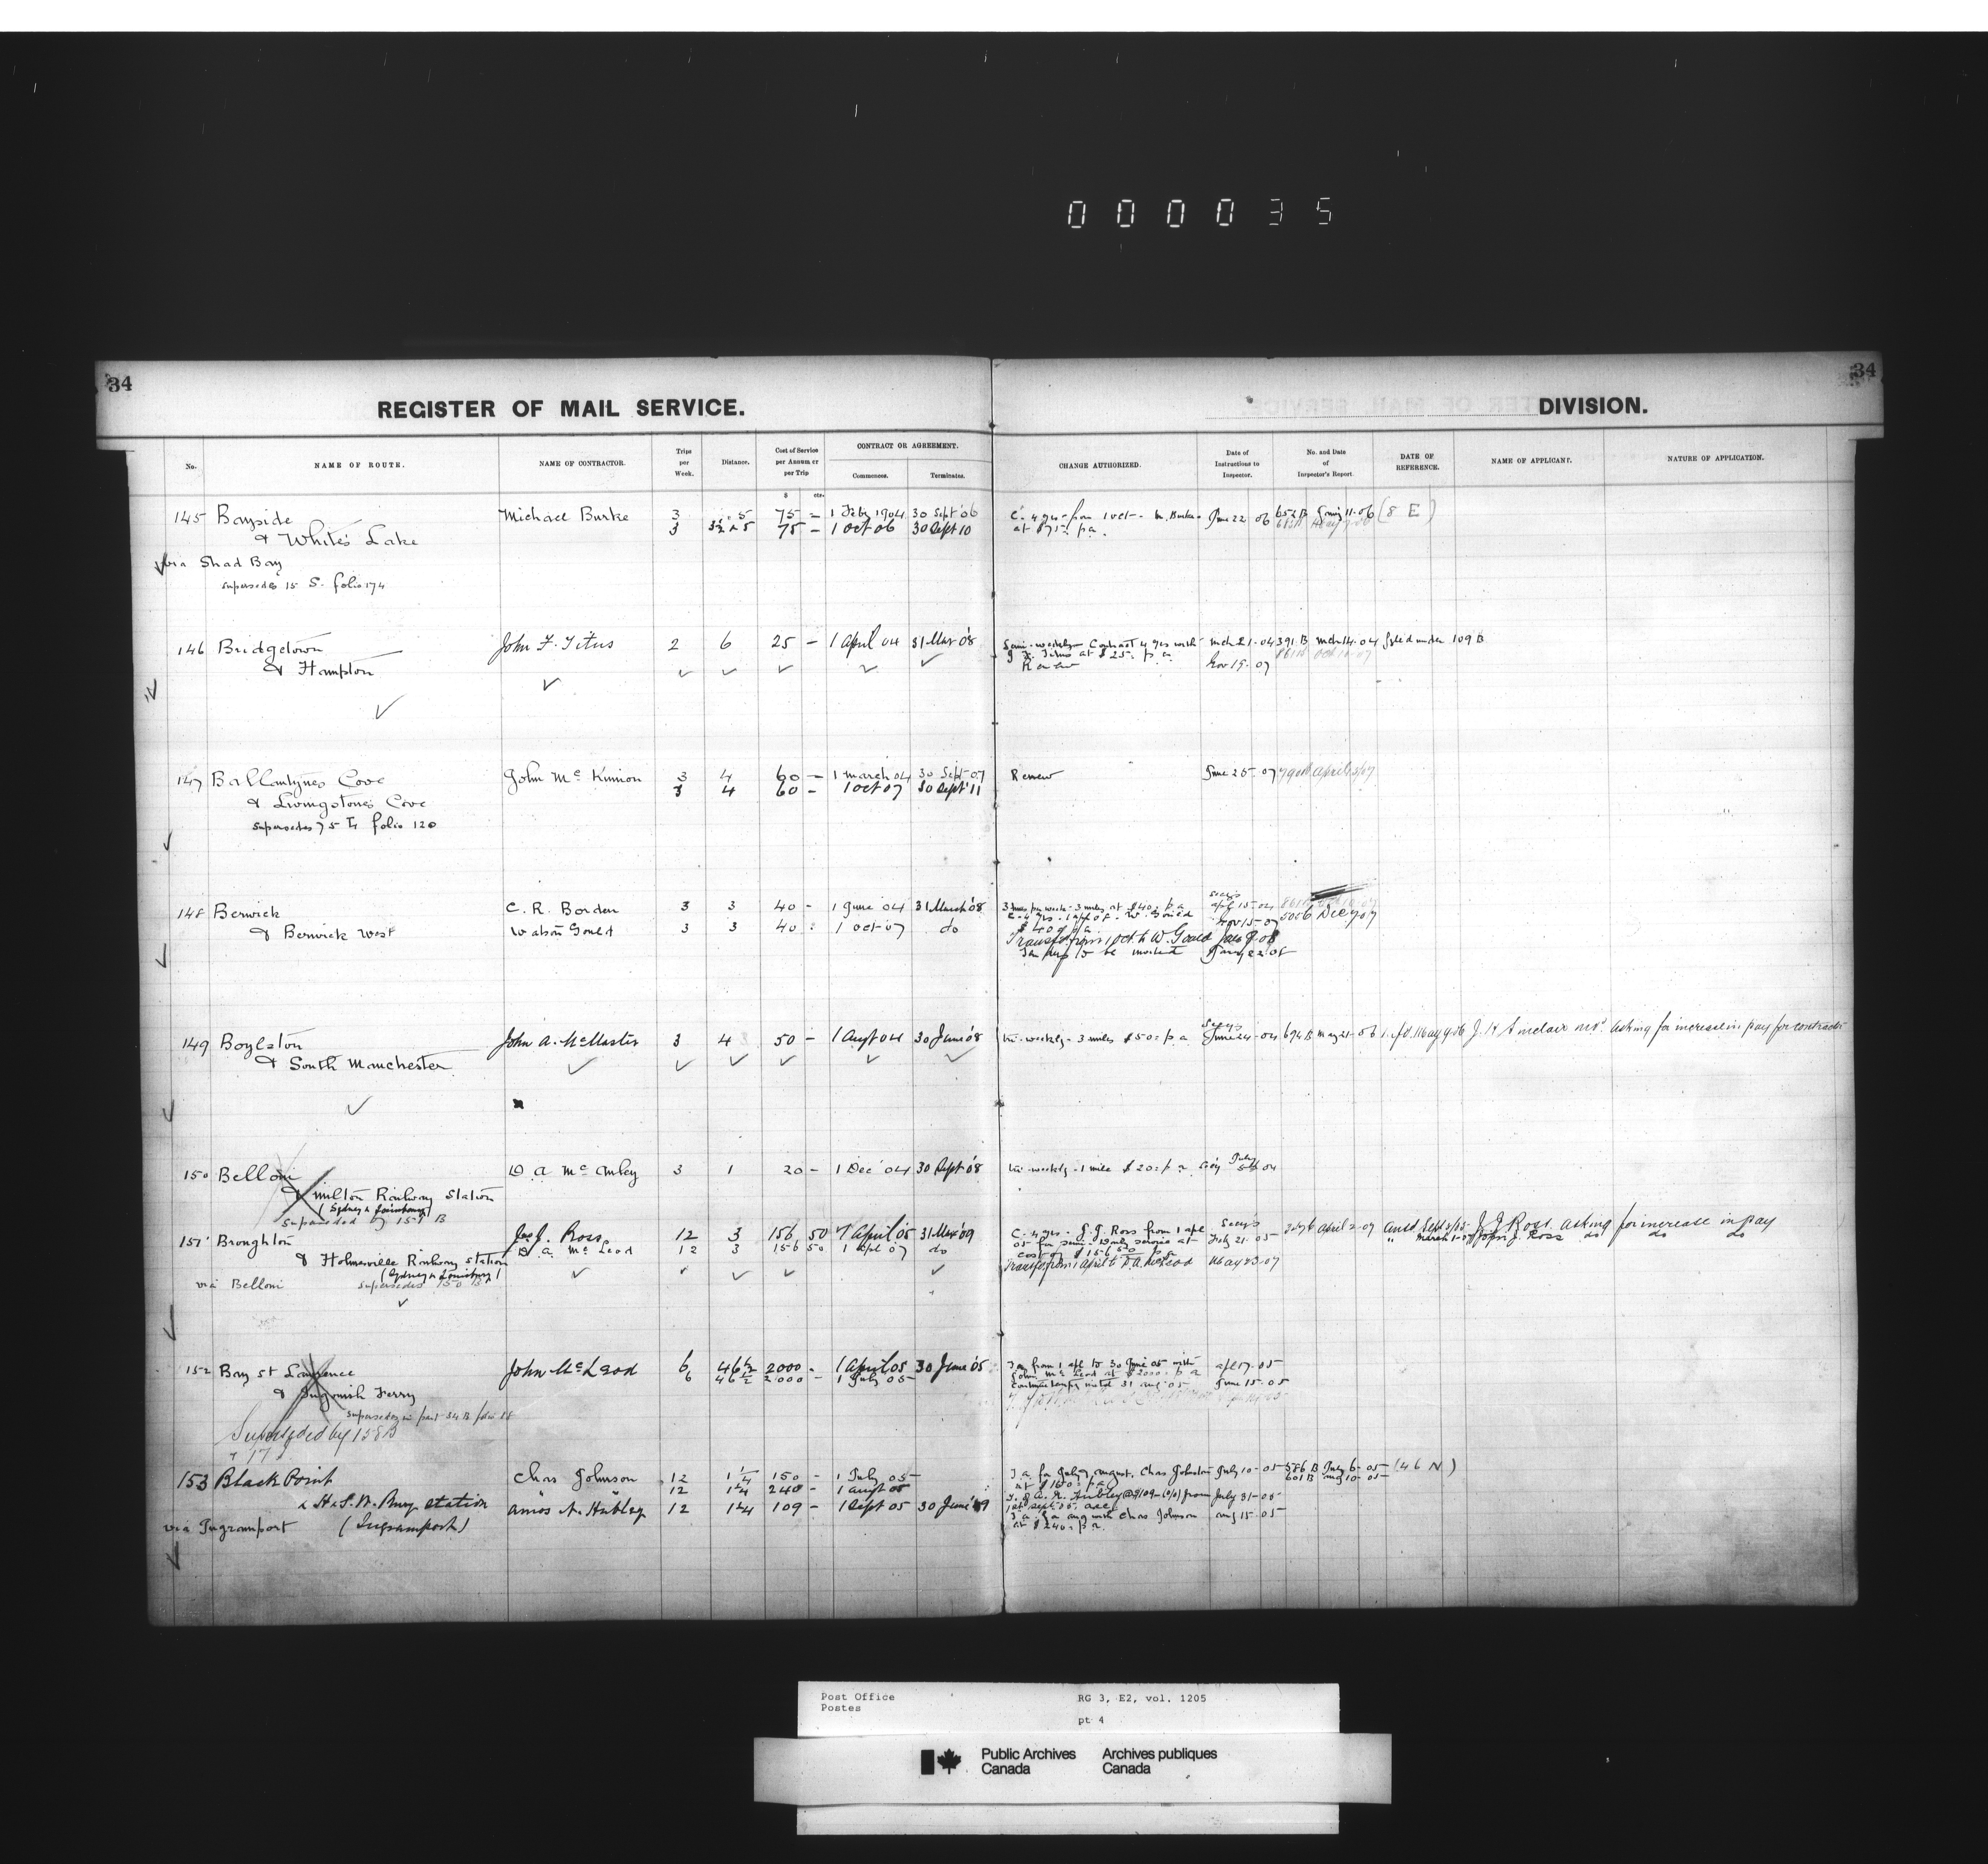 000035
34
34
REGISTER OF MAIL SERVICE.
DIVISION.
No.
NAME OF ROUTE.
NAME OF CONTRACTOR.
Trips per Week.
Distance.
Cost of Service per Annum or per Trip
CONTRACT OR AGREEMENT.
Commences.
Terminates.
CHANGE AUTHORIZED.
Date of Instructions to Inspector.
No. and Date of Inspector's Report
DATE OF REFERENCE.
NAME OF APPLICANT.
NATURE OF APPLICATION.
$ cts.
145 Bayside Michael Burke 3 5 75 - 1 Feby 1904 30 Sept '06 C- 4 yrs from 1 oct- M. Burke June 22 06 652 B June 11-06 (8 E)
& White's Lake 3 3½ & 5 75 - 1 Oct 06 30 Sept 10 at $75- pa.
via Shad Bay
supersedes 15 S. folio 174
146 Bridgetown John F. Titus 2 6 25 - 1 April 04 31 Mar '08 Semi-weekly Contract 4 yrs with Mch 21-04 391 B Mch 14-04 filed under 109 B
J. F. Titus at $25. p a
& Hampton Renew Nov 15-07
147 Ballantynes Cove John McKinnon 3 4 60 - 1 March 04 30 Sept 07 Renew June 25-07
& Livingstones Cove 3 4 60 - 1 Oct 07 30 Sept '11
supersedes 75 T folio 120
148 Berwick C. R. Borden 3 3 40 - 1 June '04 31 March '08 3 times per week - 3 miles at $40- p a Secy's Apl 15-04
& Berwick West Watson Gould 3 3 40 : 1 Oct 07 do Nov 15-07 500 B Dec 7 07
$40 pa
Transfer from 1 Oct to W. Gould Jan 9-08
149 Boylston John A. McMaster 3 4 50 - 1 Augt 04 30 June '08 tri-weekly - 3 miles $50- p a Secy's June 24-04 694 B May 21-06 J. H. Sinclair M.P. asking for increase in pay for contractor
& South Manchester
150 Belloni D A McAuley 3 1 20 - 1 Dec '04 30 Sept '08 tri-weekly - 1 mile $20- p a July 04
& Milton Railway Station
(Sydney & Louisburg)
superseded by 151 B
151 Broughton J. J. Ross 12 3 156 50 1 April '05 31 Mar '09 C- 4 yrs - J. J. Ross from 1 apl Secy's July 21-05 April 2-07 Sept J. J. Ross. asking for increase in pay
D. A. McLeod 12 3 156 50 1 Apl 07 do 05 for semi-daily service at March 1-07 John J. Ross do do do
& Holmesville Railway station cost of $156.50 p a
(Sydney & Louisburg) Transfer from 1 April to D. A. McLeod May 23-07
via Belloni supersedes 150 B
152 Bay St Lawrence John McLeod 6 46½ 2000 - 1 April 05 30 June '05 T a from 1 apl to 30 June 05 with apl 17-05
6 46½ 2000 - 1 July 05 John McLeod at $2000- p a
& Ingonish Ferry Continue temp until 31 Aug '05 June 15-05
supersedes in part 34 B folio
Superseded by 158 B
& 17
153 Black Point Chas Johnson 12 1¼ 150 - 1 July 05 T a for July & August. Chas Johnston July 10-05 586 B July 6-05 (46 N)
12 1¼ 240 - 1 Augt 05 at $150 pa 601 B Aug 10-05
& H. & S. W. Rwy station Amos A. Hubley 12 1¼ 109 - 1 Sept 05 30 June '09 A. A. Hubley @ $109- from July 31-05
1st Sept 05
via Ingramport (Ingramport) T a for aug with Chas Johnson Aug 15-05
at $240- p a
Post Office
Postes
RG 3, E2, vol. 1205
pt 4
Public Archives Canada
Archives publiques Canada